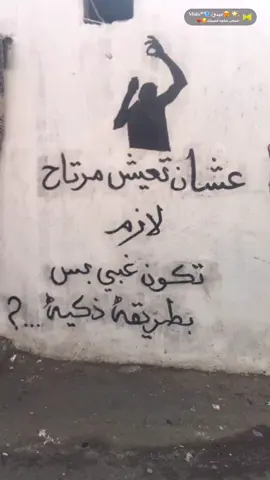 عشان تعيش مرتاح
لازم
تكون غبي بس
بطريقة ذكية ...؟